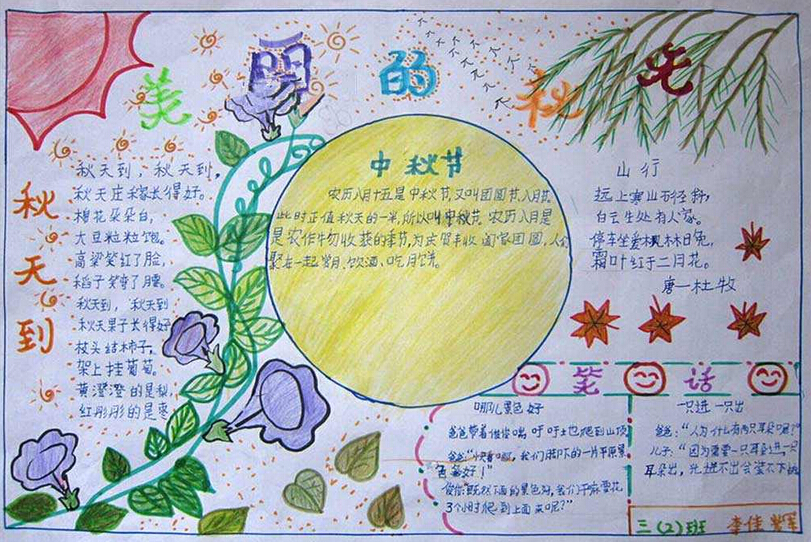 美丽的秋天
秋天到
秋天到,秋天到,
秋天庄稼长得好。
棉花朵朵白,
大豆粒粒饱。
高粱笑红了脸,
稻子笑弯了腰。
秋天到,秋天到
秋天果子长得好
枝头结柿子,
架上挂葡萄。
黄澄澄的是梨,
红彤彤的是枣
中秋节
农历八月十五是中秋节,又叫团圆节、八月节。
此时正值秋天的一半,所以叫中秋节。农历八月是
是农作物收获的季节,为庆贺丰收阖家团圆,人们
聚在一起赏月、饮酒、吃月饼。
山行
远上寒山石径斜,
白云生处有人家。
停车坐爱枫林晚,
霜叶红于二月花。
唐—杜牧
笑话
哪儿景色好
爸爸带着俊俊喘吁吁地爬到山顶
爸爸:“快看啊,我们脚下的一片平原景
色多好!”
3个小时爬到上面来呢?”
一只进一只出
爸爸:“人为什么有两只耳朵呢?”
儿子:“因为需要一只耳朵进一只
耳朵出,
三(2)班 李佳辉